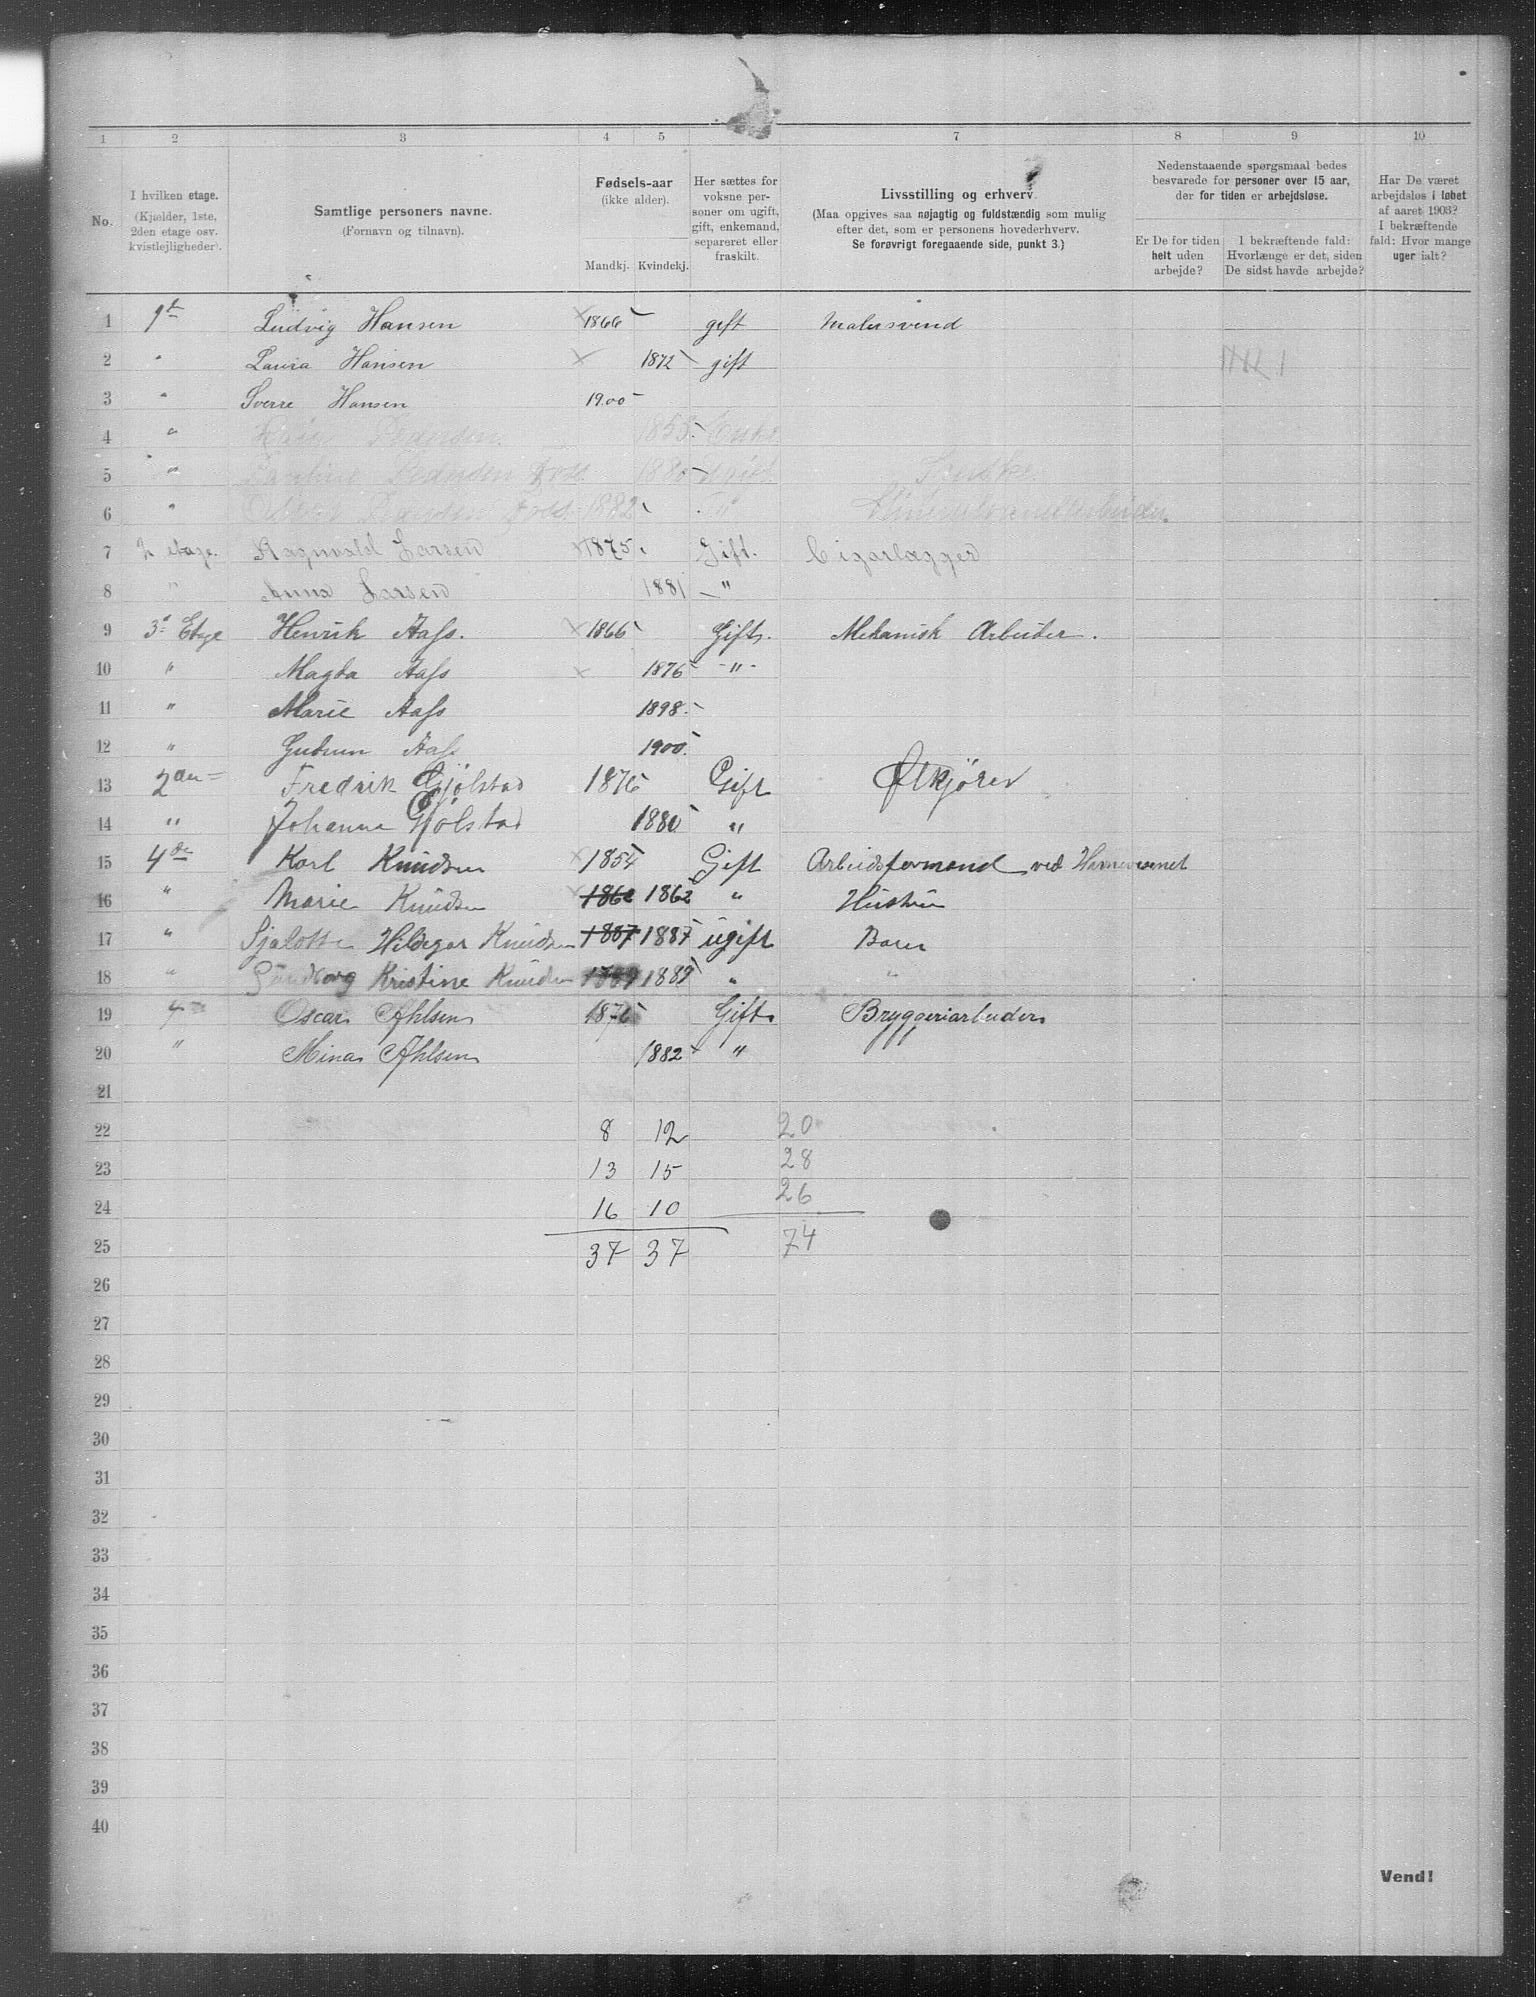 1 2 3 4 5 6 7 8 9 10
No.
I hvilken etage.
(Kjælder, 1ste,
2den etage osv.
kvistlejligheder).
Samtlige personers navne.
(Fornavn og tilnavn).
Fødsels-aar
(ikke alder).
Mandkj. Kvindekj.
Her sættes for
voksne per-
soner om ugift,
gift, enkemand,
separeret eller
fraskilt.
Livsstilling og erhverv.
(Maa opgives saa nøjagtig og fuldstændig som mulig
efter det, som er personens hovederhverv.
Se forøvrigt foregaaende side, punkt 3.)
Nedenstaaende spørgsmaal bedes
besvarede for personer over 15 aar,
der for tiden er arbejdsløse.
Er De for tiden
helt uden
arbejde?
I bekræftende fald:
Hvorlænge er det, siden
De sidst havde arbejde?
Har De været
arbejdsløs i løbet
af aaret 1903?
I bekræftende
fald: Hvor mange
uger ialt?
1 1st Ludvig Hansen × 1866 gift Malersvend
2 " Laura Hansen × 1872 gift
3 " Sverre Hansen 1900
4 " Pedersen 1855 Enke
5 " Pauline Pedersen 1880 Ugift
6 " Pedersen 1882 "
7 2 etage. Ragnvald Larsen × 1875 Gift. Cigarlægger
8 " Anna Larsen 1881 "
9 3d Etage Henrik Aass. × 1866 Gift. Mekanisk Arbeider.
10 " Magda Aass × 1876 -"-
11 " Marie Aass 1898
12 " Gudrun Aass 1900
13 2den Fredrik Gjølstad 1876 Gift Ølkjører
14 " Johanna Gjølstad 1880 "
15 4de Karl Knudsen × 1854 Gift Arbeidsformand ved Havnevæsnet
16 " Marie Knudsen × 1862 1862 " Hustru
17 " Sjalotte Hildegar Knudsen 1887 1887 ugift Barn
18 " Kristine Knudsen 1889 1889 " "
19 4de Oscar Ahlsen 1876 Gift Bryggeriarbeider
20 " Mina Ahlsen 1882 "
21
22 8 12 20
23 13 15 28
24 16 10 26
25 37 37 74
26
27
28
29
30
31
32
33
34
35
36
37
38
39
40
Vend!